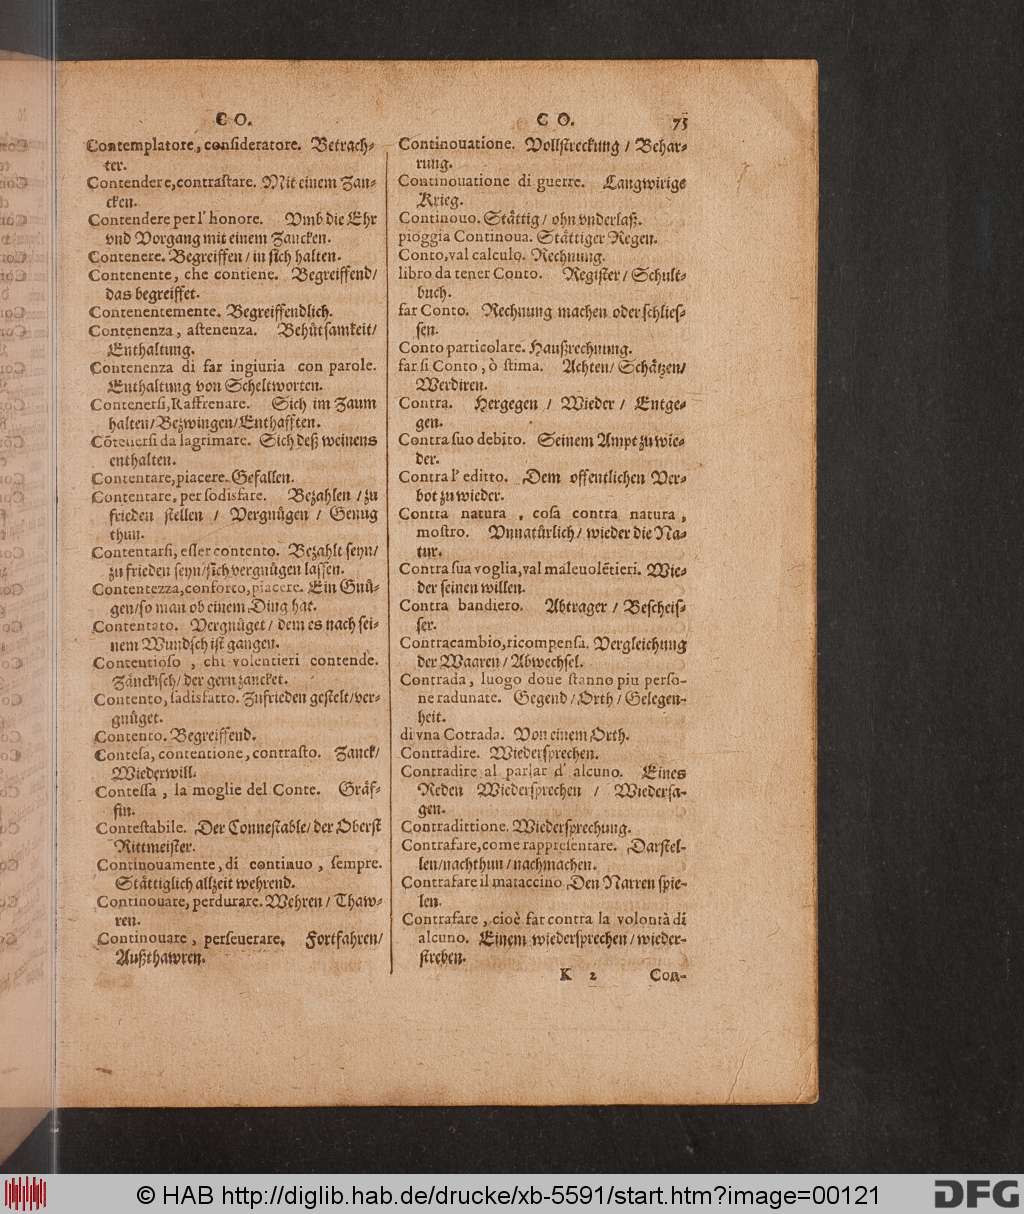 C O.
Contemplatore, consideratore. Betrach-
ter.
Contendere, contrastare. Mit einem Zan-
cken.
Contendere per l' honore. Vmb die Ehr
vnd Vorgang mit einem Zancken.
Contenere. Begreiffen / in sich halten.
Contenente, che contiene. Begreiffend /
das begreiffet.
Contenentemente. Begreiffendlich.
Contenenza, astenenza. Behůtsamkeit /
Enthaltung.
Contenenza di far ingiuria con parole.
Enthaltung von Scheltworten.
Contenersi, Raffrenare. Sich im Zaum
halten / Bezwingen / Enthafften.
Cōtenersi da lagrimare. Sich deß weinens
enthalten.
Contentare, piacere. Gefallen.
Contentare, per sodisfare. Bezahlen / zu
frieden stellen / Vergnůgen / Genug
thun.
Contentarsi, esser contento. Bezahlt seyn /
zu frieden seyn / sich vergnůgen lassen.
Contentezza, conforto, piacere. Ein Gnů-
gen / so man ob einem Ding hat.
Contentato. Vergnůget / dem es nach sei-
nem Wundsch ist gangen.
Contentioso, chi volentieri contende.
Zånckisch / der gern zancket.
Contento, sadisfatto. Zufrieden gestelt / ver-
gnůget.
Contento. Begreiffend.
Contesa, contentione, contrasto. Zanck /
Wiederwill.
Contessa, la moglie del Conte. Gråf-
fin.
Contestabile. Der Connestable / der Oberst
Rittmeister.
Continouamente, di continuo, sempre.
Ståttiglich allzeit wehrend.
Continouare, perdurare. Wehren / Thaw-
ren.
Continouare, perseuerare. Fortfahren /
Außthawren.
C O. 75
Continouatione. Vollstreckung / Behar-
rung.
Continouatione di guerre. Langwirige
Krieg.
Continouo. Ståttig / ohn vnderlaß.
pioggia Continoua. Ståttiger Regen.
Conto, val calculo. Rechnung.
libro da tener Conto. Register / Schult-
buch.
far Conto. Rechnung machen oder schlies-
sen.
Conto particolare. Haußrechnung.
far si Conto, ò stima. Achten / Schåtzen /
Werdiren.
Contra. Hergegen / Wieder / Entge-
gen.
Contra suo debito. Seinem Ampt zu wie-
der.
Contra l' editto. Dem offentlichen Ver-
bot zu wieder.
Contra natura, cosa contra natura,
mostro. Vnnatůrlich / wieder die Na-
tur.
Contra sua voglia, val maleuolētieri. Wie-
der seinen willen.
Contra bandiero. Abtrager / Bescheis-
ser.
Contracambio, ricompensa. Vergleichung
der Waaren / Abwechsel.
Contrada, luogo doue stanno piu perso-
ne radunate. Gegend / Orth / Gelegen-
heit.
di vna Cotrada. Von einem Orth.
Contradire. Wiedersprechen.
Contradire al parlar d' alcuno. Eines
Reden Wiedersprechen / Wiedersa-
gen.
Contradittione. Wiedersprechung.
Contrafare, come rappresentare. Darstel-
len / nachthun / nachmachen.
Contrafare il mataccino. Den Narren spie-
len.
Contrafare, cioè far contra la volontà di
alcuno. Einem wiedersprechen / wieder-
streben.
K 2 Con-
© HAB http://diglib.hab.de/drucke/xb-5591/start.htm?image=00121
DFG